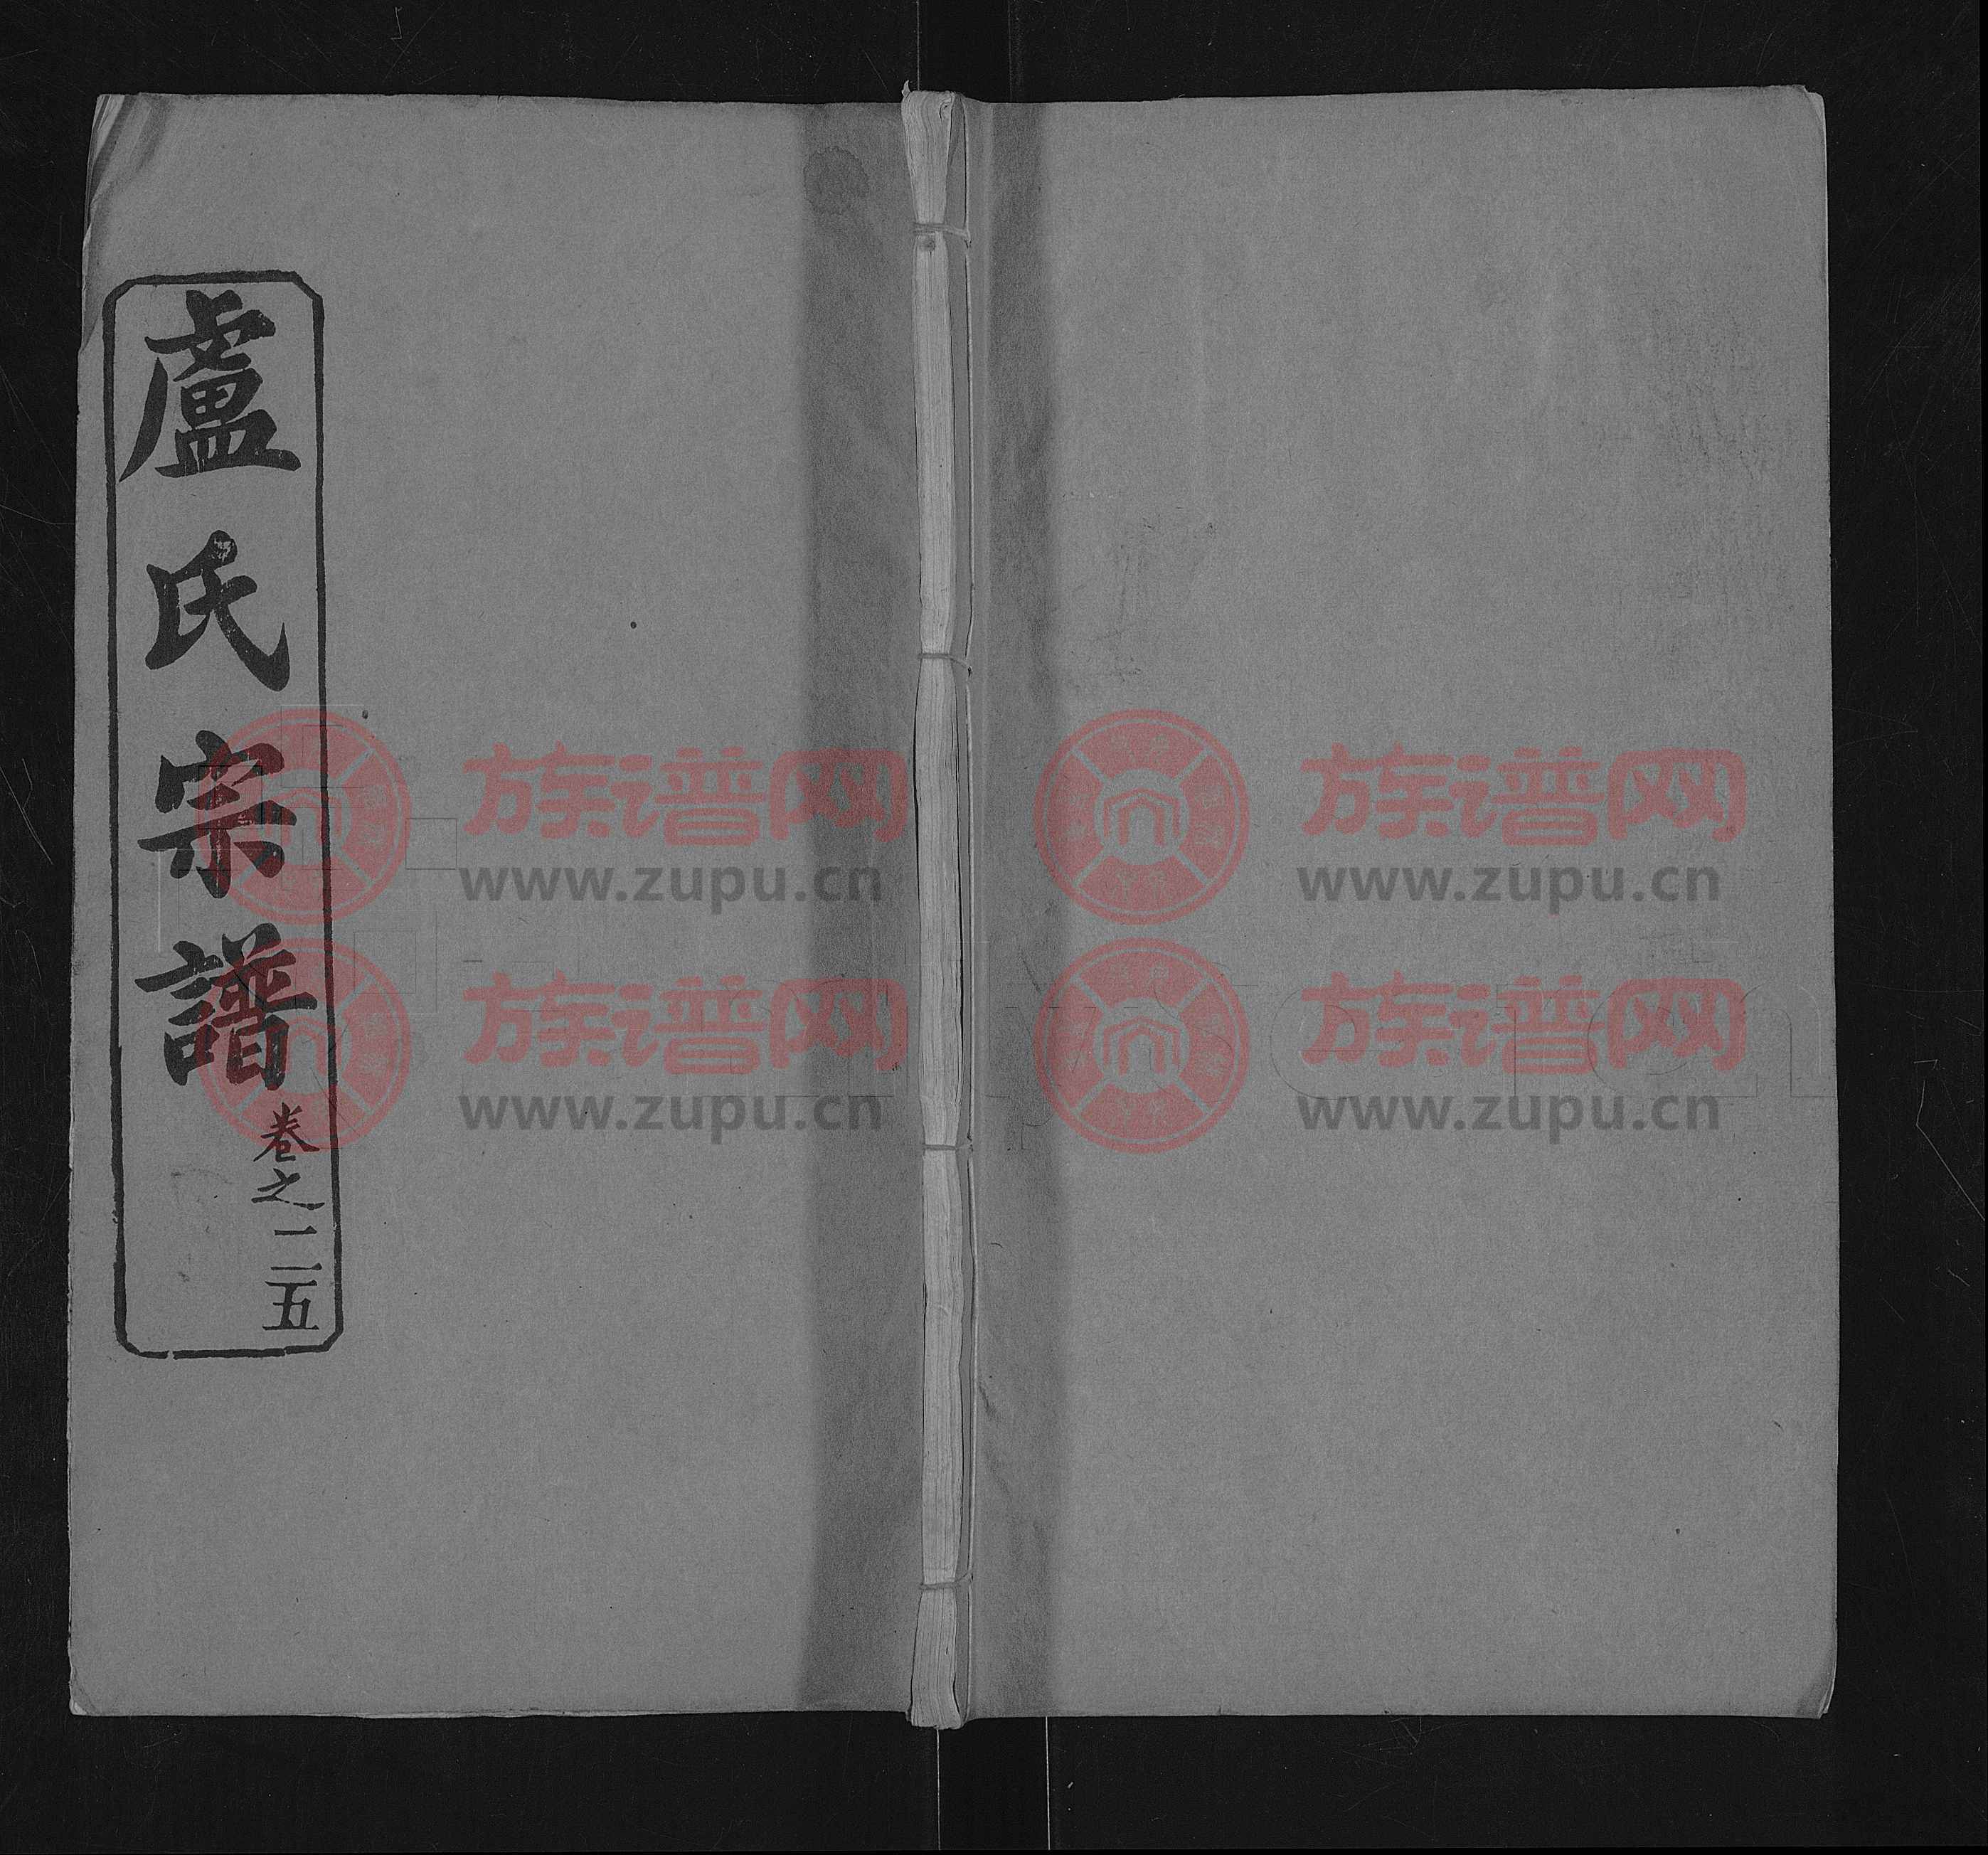 盧氏宗譜
卷之二五
族谱网
www.zupu.cn
族谱网
www.zupu.cn
族谱网
www.zupu.cn
族谱网
www.zupu.cn